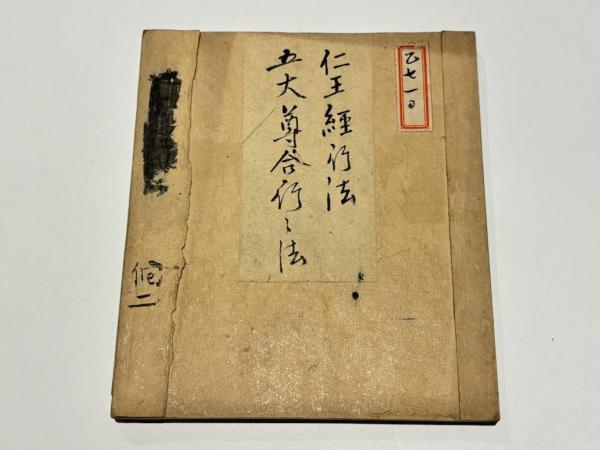 乙七一ロ
仁王經行法
五大尊合行〻法
二